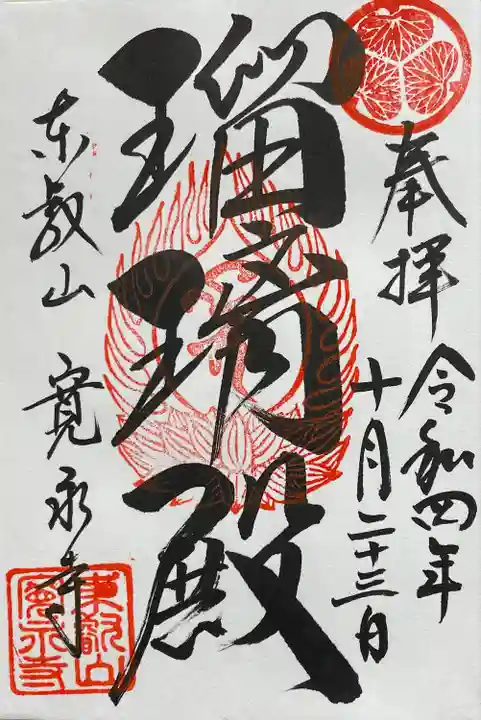 奉拝
令和四年
十月二十三日
瑠璃殿
東叡山
寛永寺
東叡山
寛永寺